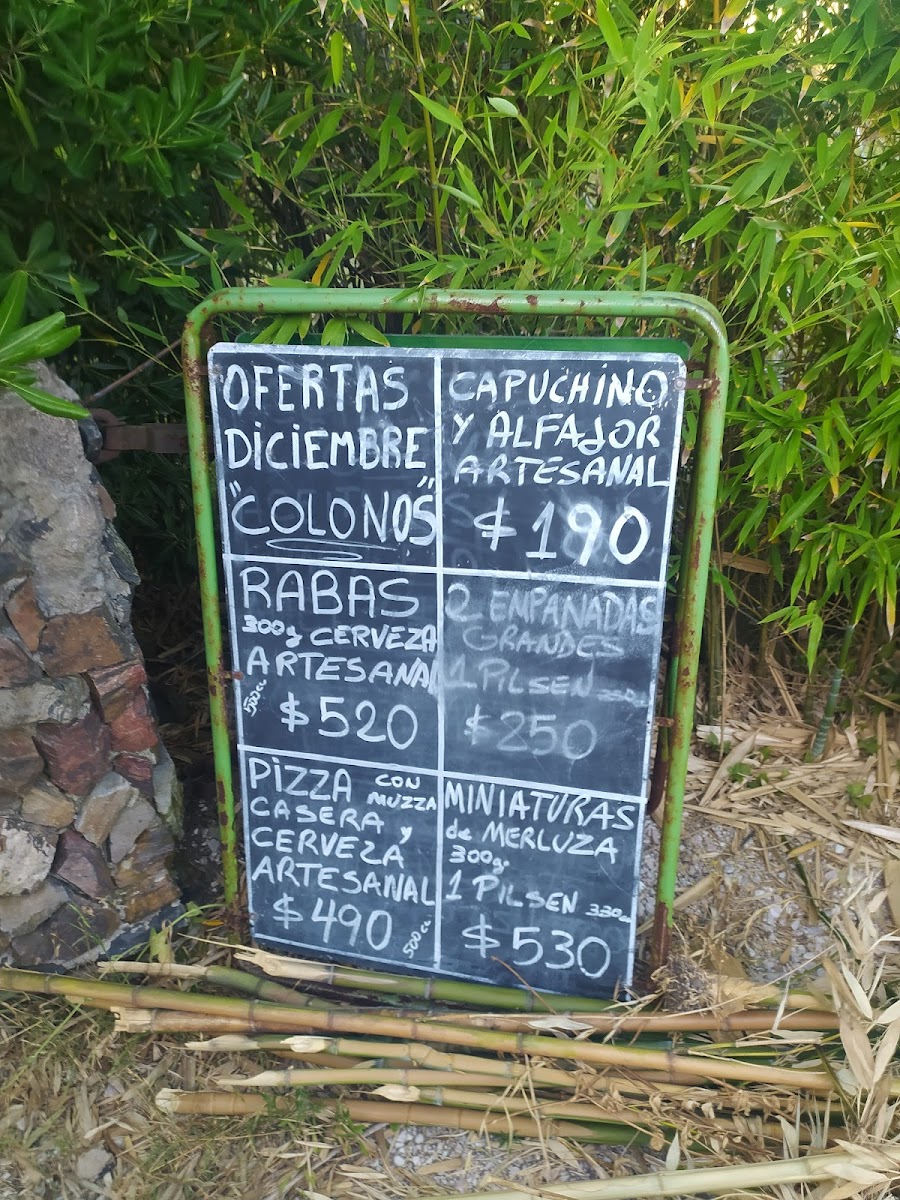 OFERTAS
DICIEMBRE
"COLONOS"
CAPUCHINO
Y ALFAJOR
ARTESANAL
$190
RABAS
300g CERVEZA
ARTESANAL
500cc
$520
2 EMPANADAS
GRANDES
1 PILSEN
$250
PIZZA CON
MUZZA
CASERA y
CERVEZA
ARTESANAL
$490
500cc
MINIATURAS
de MERLUZA
300g.
1 PILSEN 330cc
$530